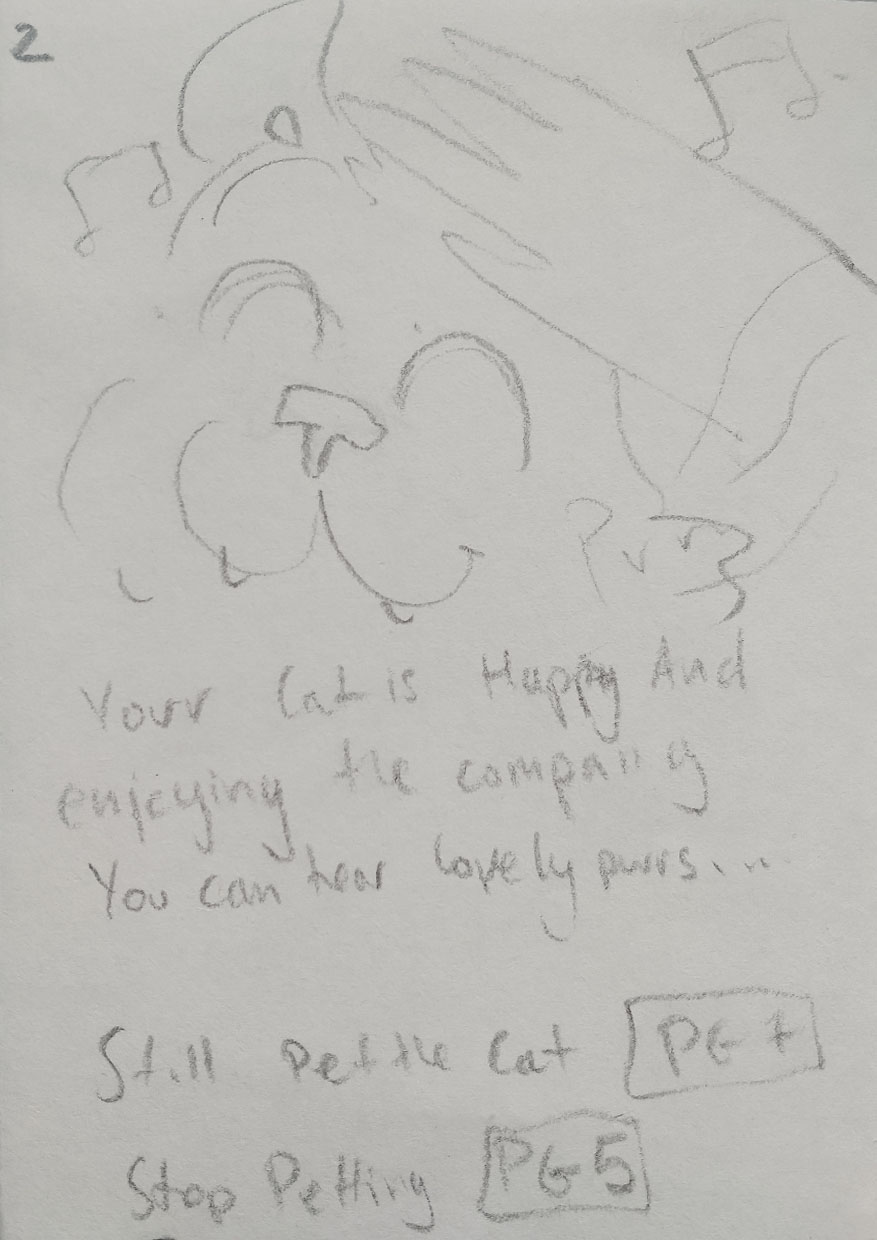 2
Purr
Your Cat is Happy And
enjoying the company
You can hear lovely purrs...
Still Pet the Cat PG 7
Stop Petting PG 5